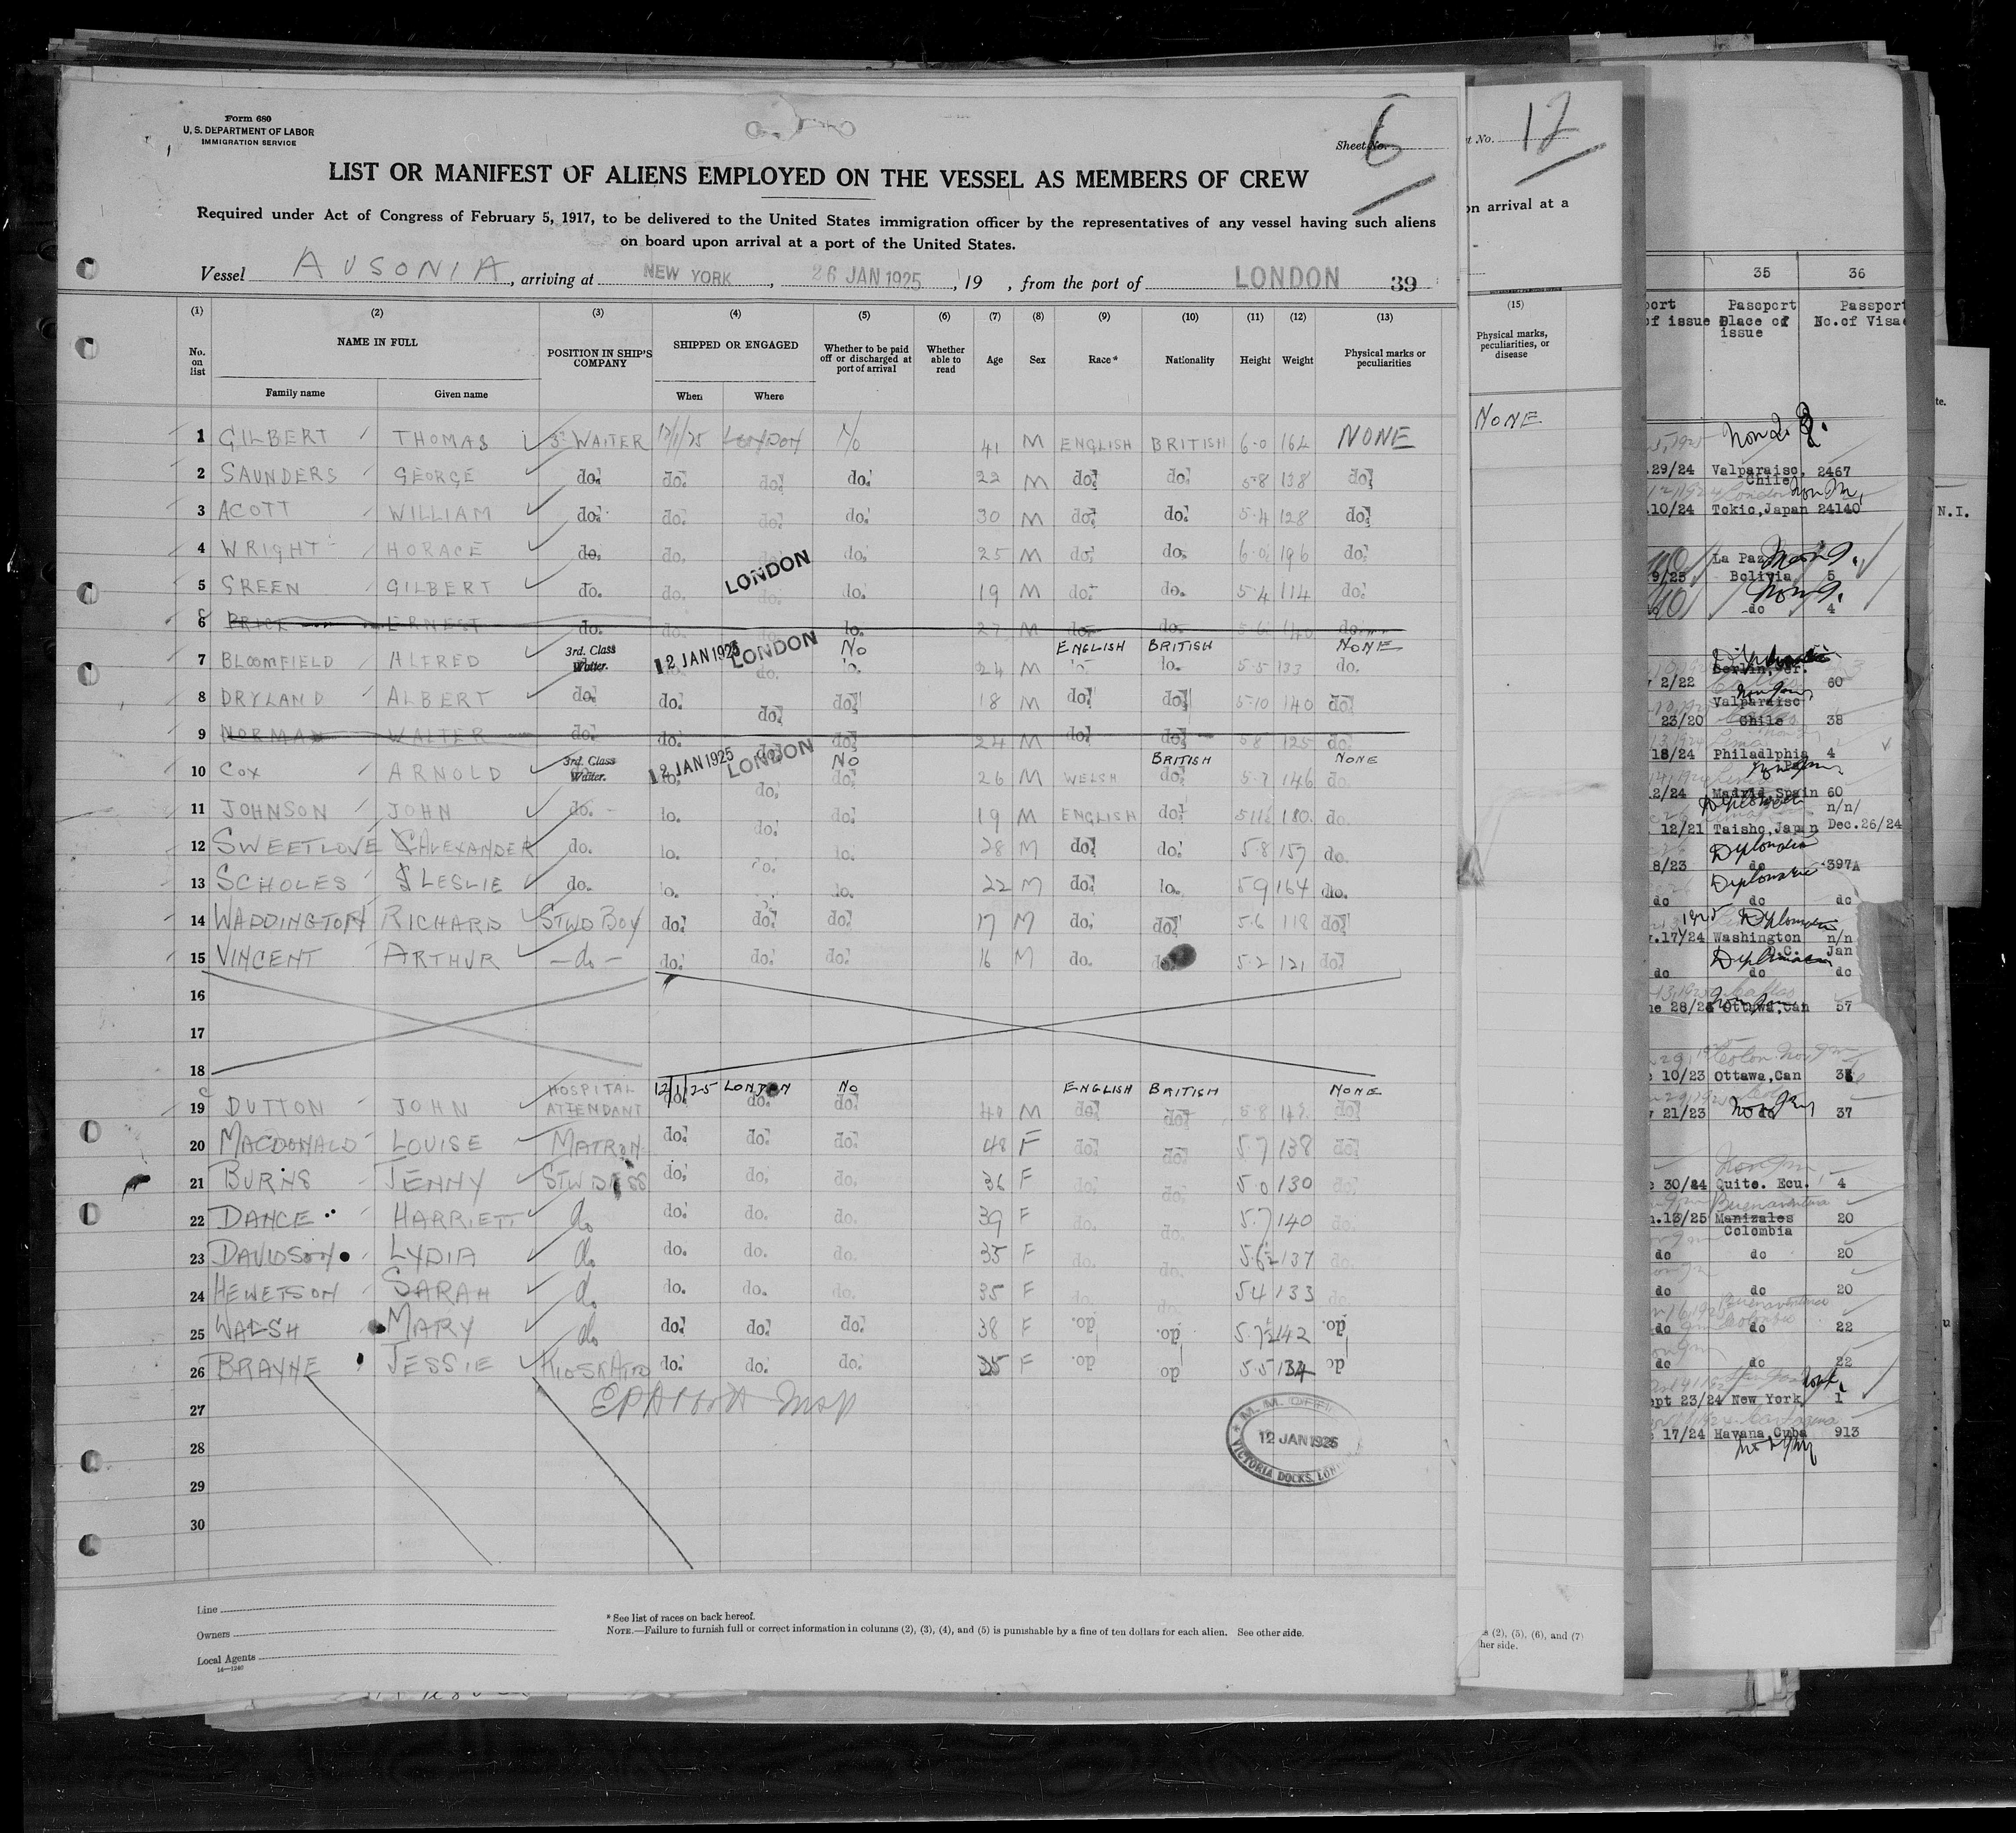 Form 680
U. S. DEPARTMENT OF LABOR
IMMIGRATION SERVICE
Sheet No. 6
LIST OR MANIFEST OF ALIENS EMPLOYED ON THE VESSEL AS MEMBERS OF CREW
Required under Act of Congress of February 5, 1917, to be delivered to the United States immigration officer by the representatives of any vessel having such aliens
on board upon arrival at a port of the United States.
Vessel AUSONIA, arriving at NEW YORK, 26 JAN 1925, 19 , from the port of LONDON 39
(1) (2) (3) (4) (5) (6) (7) (8) (9) (10) (11) (12) (13)
No. on list NAME IN FULL POSITION IN SHIP'S COMPANY SHIPPED OR ENGAGED Whether to be paid off or discharged at port of arrival Whether able to read Age Sex Race* Nationality Height Weight Physical marks or peculiarities
Family name Given name When Where
1 GILBERT THOMAS 3rd WAITER 12/1/25 LONDON No 41 M ENGLISH BRITISH 6-0 162 NONE
2 SAUNDERS GEORGE do. do. do. do. 22 M do. do. 5-8 138 do.
3 ACOTT WILLIAM do. do. do. do. 30 M do. do. 5-4 128 do.
4 WRIGHT HORACE do. do. do. do. 25 M do. do. 6-0 196 do.
LONDON
5 GREEN GILBERT do. do. do. do. 19 M do. do. 5-4 114 do.
6 PRICE ERNEST do. do. do. do. 27 M do. do. 5-6 140 do.
7 BLOOMFIELD ALFRED 3rd. Class Waiter. 12 JAN 1925 LONDON No 24 M ENGLISH BRITISH 5-5 133 NONE do.
8 DRYLAND ALBERT do. do. do. do. 18 M do. do. 5-10 140 do.
9 NORMAN WALTER do. do. do. do. 24 M do. do. 5 8 125 do.
10 COX ARNOLD 3rd. Class Waiter. 12 JAN 1925 LONDON No do. 26 M WELSH BRITISH do. 5-7 146 NONE do.
11 JOHNSON JOHN do. do. do. do. 19 M ENGLISH do. 5 11½ 180 do.
12 SWEETLOVE ALEXANDER do. do. do. do. 28 M do. do. 5-8 157 do.
13 SCHOLES LESLIE do. do. do. do. 22 M do. do. 5 9 164 do.
14 WADDINGTON RICHARD STWD BOY do. do. do. 17 M do. do. 5-6 118 do.
15 VINCENT ARTHUR -do- do. do. do. 16 M do. do. 5-2 121 do.
16
17
18
19 DUTTON JOHN HOSPITAL ATTENDANT 12/1/25 LONDON No do. M ENGLISH BRITISH do. 5-8 NONE do.
20 MACDONALD LOUISE MATRON do. do. do. 48 F do. do. 5-7 138 do.
21 BURNS JENNY STWDESS do. do. do. 36 F do. do. 5-0 130 do.
22 DANCE HARRIETT do do. do. do. 39 F do. do. 5-7 140 do.
23 DAVIDSON LYDIA do do. do. do. 35 F do. do. 5-6½ 137 do.
24 HEWETSON SARAH do do. do. do. 35 F do. do. 5 4 133 do.
25 WALSH MARY do do. do. do. 38 F do. do. 5-7½ 142 do.
26 BRAYNE JESSIE KIOSK ATTD do. do. do. 35 F do. do. 5-5 134 do.
27
28
29
30
12 JAN 1925
VICTORIA DOCKS, LONDON
Line
Owners
Local Agents
14—1240
* See list of races on back hereof.
NOTE.—Failure to furnish full or correct information in columns (2), (3), (4), and (5) is punishable by a fine of ten dollars for each alien. See other side.
t No. 12
on arrival at a
(15)
Physical marks, peculiarities, or disease
NONE
s (2), (5), (6), and (7)
her side.
35 36
Passport Place of issue
Passport No. of Visa
.29/24 Valparaiso, Chile 2467
.10/24 Tokio, Japan 24140
9/25 La Paz Bolivia 5
do 4
2/22 60
23/20 Valparaiso Chile 38
18/24 Philadlphia 4
2/24 Madrid, Spain 60
n/n/
12/21 Taisho, Japan Dec.26/24
8/23 do 397A
do do do
.17/24 Washington D.C. n/n Jan
do do
28/24 Ottawa, Can 57
10/23 Ottawa, Can
21/23 do 37
30/24 Quito. Ecu. 4
.13/25 Manizales Colombia 20
do do 20
do do 20
do do 22
do do 22
ept 23/24 New York 1
17/24 Havana, Cuba 913
te.
N.I.